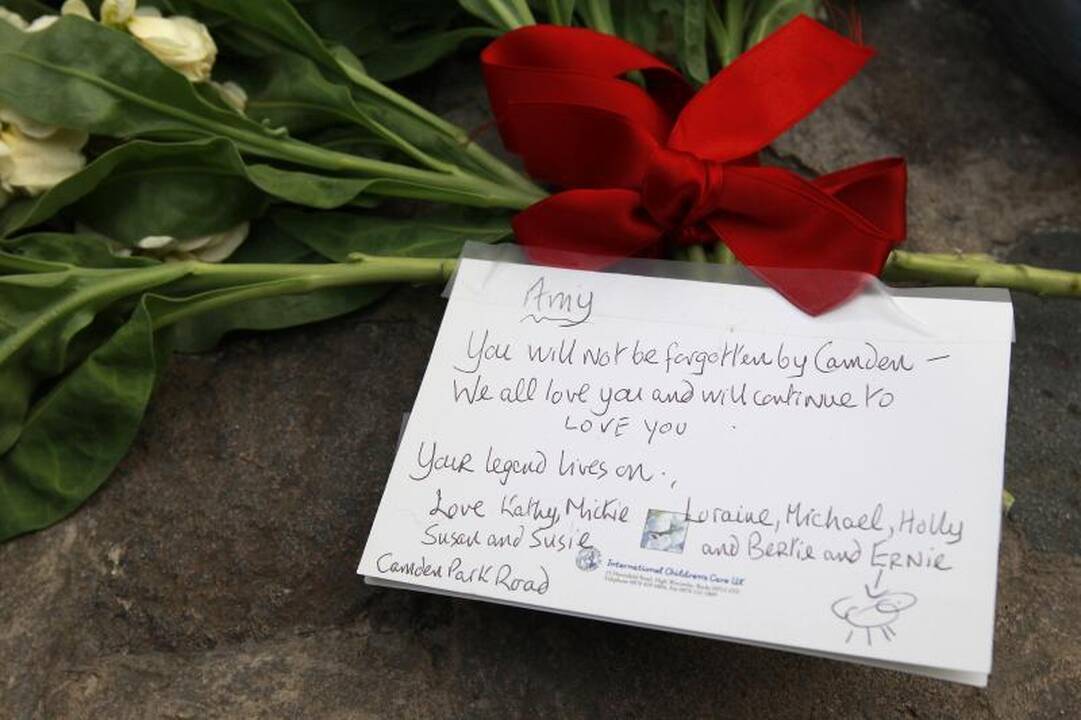 Amy
You will not be forgotten by Camden –
We all love you and will continue to
LOVE YOU .
Your legend lives on.,
Love Kathy, Mickie
Susan and Susie
Camden Park Road
Loraine, Michael, Holly
and Bertie and ERNIE
International Children's Care UK